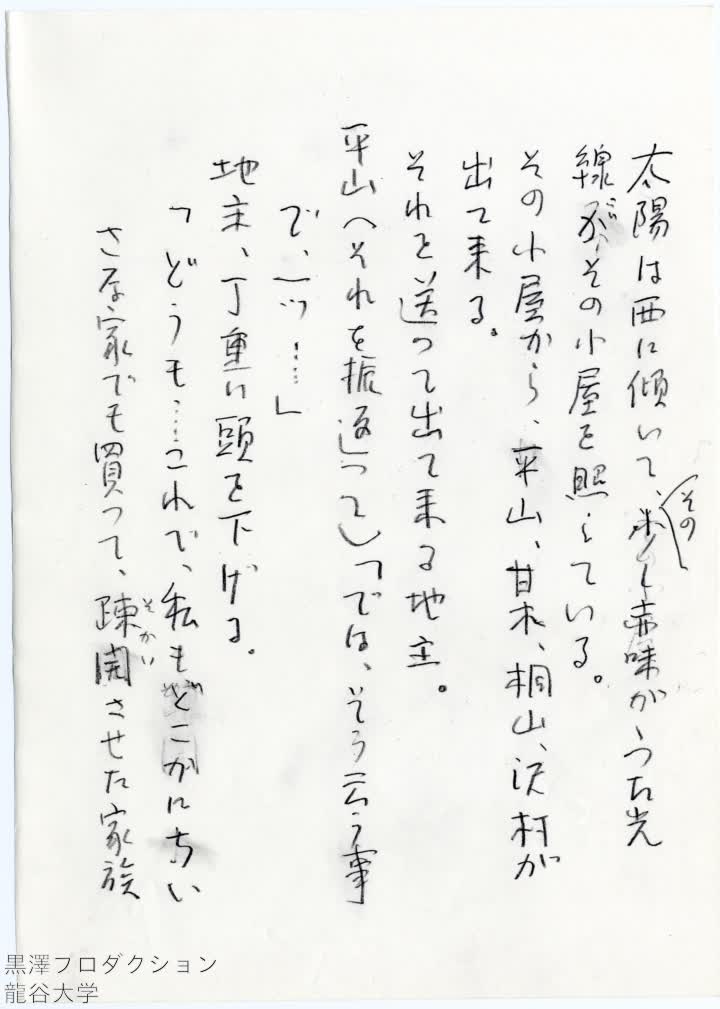 太陽は西に傾いて、その少し赤味がかった光
線が、その小屋を照らしている。
その小屋から、平山、甘木、桐山、沢村が
出て来る。
それを送って出て来る地主。
平山へそれを振返って)「では、そう云う事
で、一ツ……」
地主、丁重に頭を下げる。
「どうも……これで、私もどこかにちい
さな家でも買って、疎開させた家族
そかい
黒澤プロダクション
龍谷大学